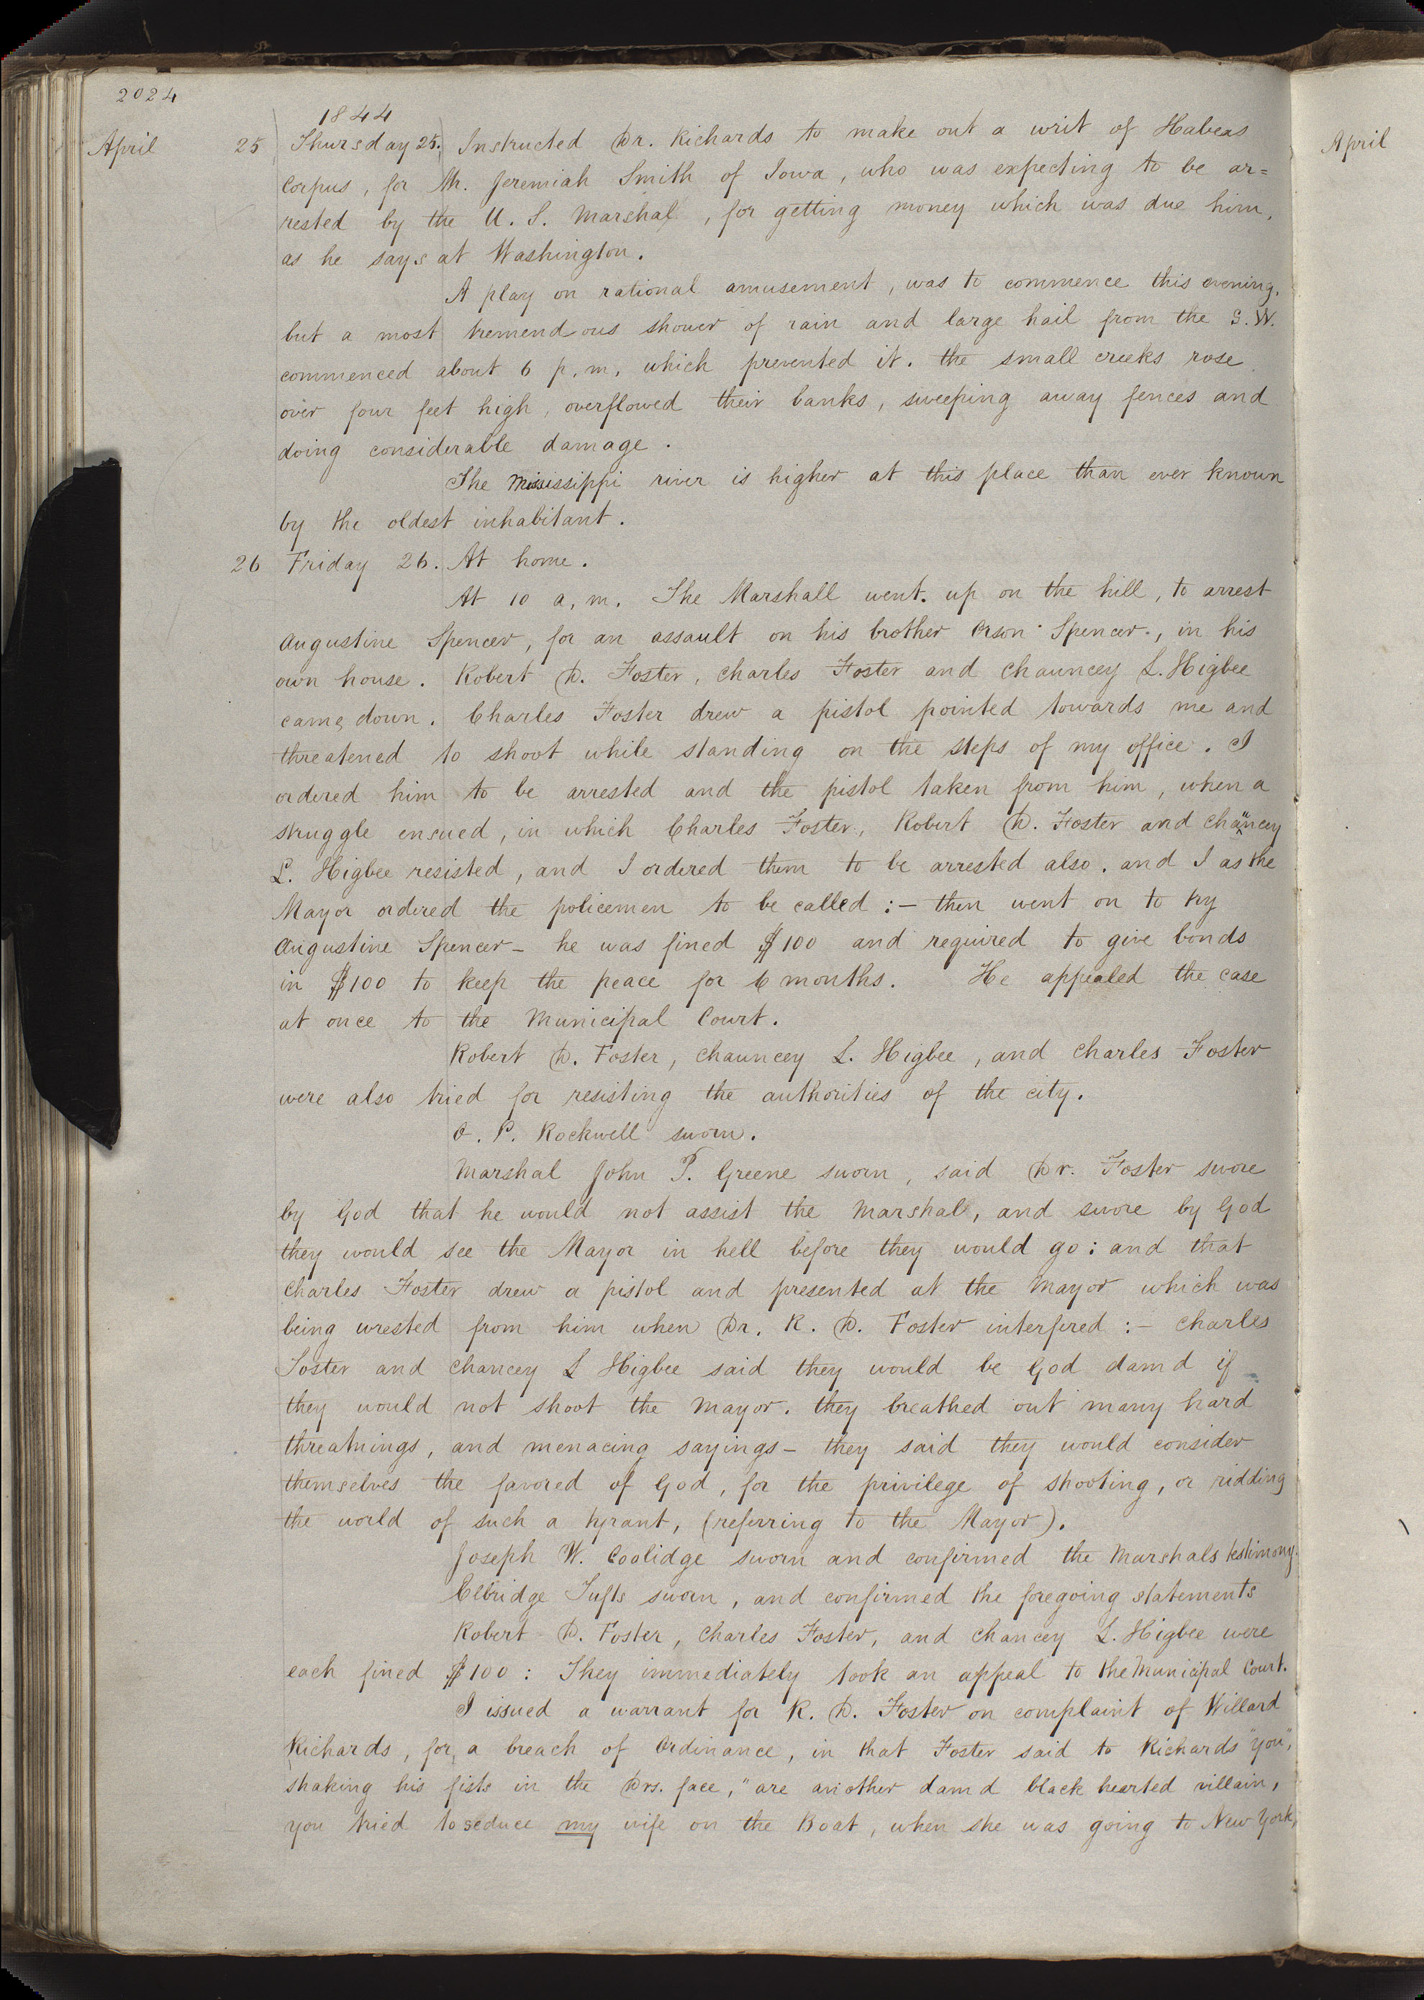 2024
1844
April 25 Thursday 25. Instructed Dr. Richards to make out a writ of Habeas
corpus, for Mr. Jeremiah Smith of Iowa, who was expecting to be ar=
rested by the U. S. Marshal, for getting money which was due him,
as he says at Washington.
A play on rational amusement, was to commence this evening,
but a most tremendous shower of rain and large hail from the S. W.
commenced about 6 p. m. which prevented it. the small creeks rose
over four feet high, overflowed their banks, sweeping away fences and
doing considerable damage.
The Mississippi river is higher at this place than ever known
by the oldest inhabitant.
26 Friday 26. At home.
At 10 a, m. The Marshall went up on the hill, to arrest
Augustine Spencer, for an assault on his brother Orson Spencer, in his
own house. Robert D. Foster, Charles Foster and Chauncey L. Higbee
came down. Charles Foster drew a pistol pointed towards me and
threatened to shoot while standing on the steps of my office. I
ordered him to be arrested and the pistol taken from him, when a
struggle ensued, in which Charles Foster, Robert D. Foster and Chauncey
L. Higbee resisted, and I ordered them to be arrested also. and I as the
Mayor ordered the policemen to be called:— then went on to try
Augustine Spencer— he was fined $100 and required to give bonds
in $100 to keep the peace for 6 months. He appealed the case
at once to the Municipal Court.
Robert D. Foster, Chauncey L. Higbee, and Charles Foster
were also tried for resisting the authorities of the city.
O. P. Rockwell sworn.
Marshal John P. Greene sworn, said Dr. Foster swore
by God that he would not assist the Marshal, and swore by God
they would see the Mayor in hell before they would go: and that
Charles Foster drew a pistol and presented at the Mayor which was
being wrested from him when Dr. R. D. Foster interfered:— Charles
Foster and Chancey L Higbee said they would be God damd if
they would not shoot the Mayor. they breathed out many hard
threatnings, and menacing sayings— they said they would consider
themselves the favored of God, for the privilege of shooting, or ridding
the world of such a tyrant, (referring to the Mayor).
Joseph W. Coolidge sworn and confirmed the Marshals testimony.
Elbridge Tufts sworn, and confirmed the foregoing statements
Robert D. Foster, Charles Foster, and Chancey L. Higbee were
each fined $100: They immediately took an appeal to the Municipal Court.
I issued a warrant for R. D. Foster on complaint of Willard
Richards, for a breach of Ordinance, in that Foster said to Richards "you",
shaking his fists in the Drs. face, "are another damd black hearted villain,
you tried to seduce my wife on the Boat, when she was going to New York,
April